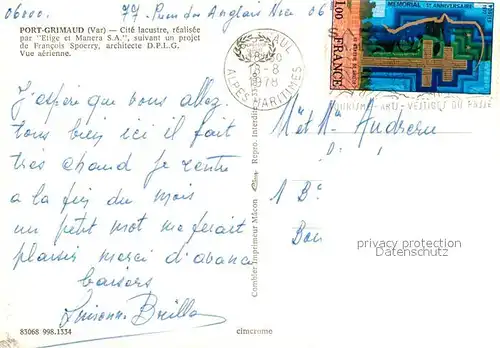 06000. 77. Rue des Anglais Nice 06
PORT-GRIMAUD (Var) — Cité lacustre, réalisée
par "Etige et Manera S.A.", suivant un projet
de François Spoerry, architecte D.P.L.G.
Vue aérienne.
J'espère que vous allez
tous bien ici il fait
très chaud je rentre
a la fin du mois
un petit mot me ferait
plaisir merci d'avance
baisers
83068 998.1334
cimcrome
Combier Imprimeur Mâcon
Repro. interdite
PAUL
18-8
1978
ALPES MARITIMES
MEMORIAL - 1er ANNIVERSAIRE
1.00 FRANCE
ARTS - VESTIGES DU PASSÉ
M et Me Andreu
1 B
Bou
privacy protection
AnsichtskartenCenter